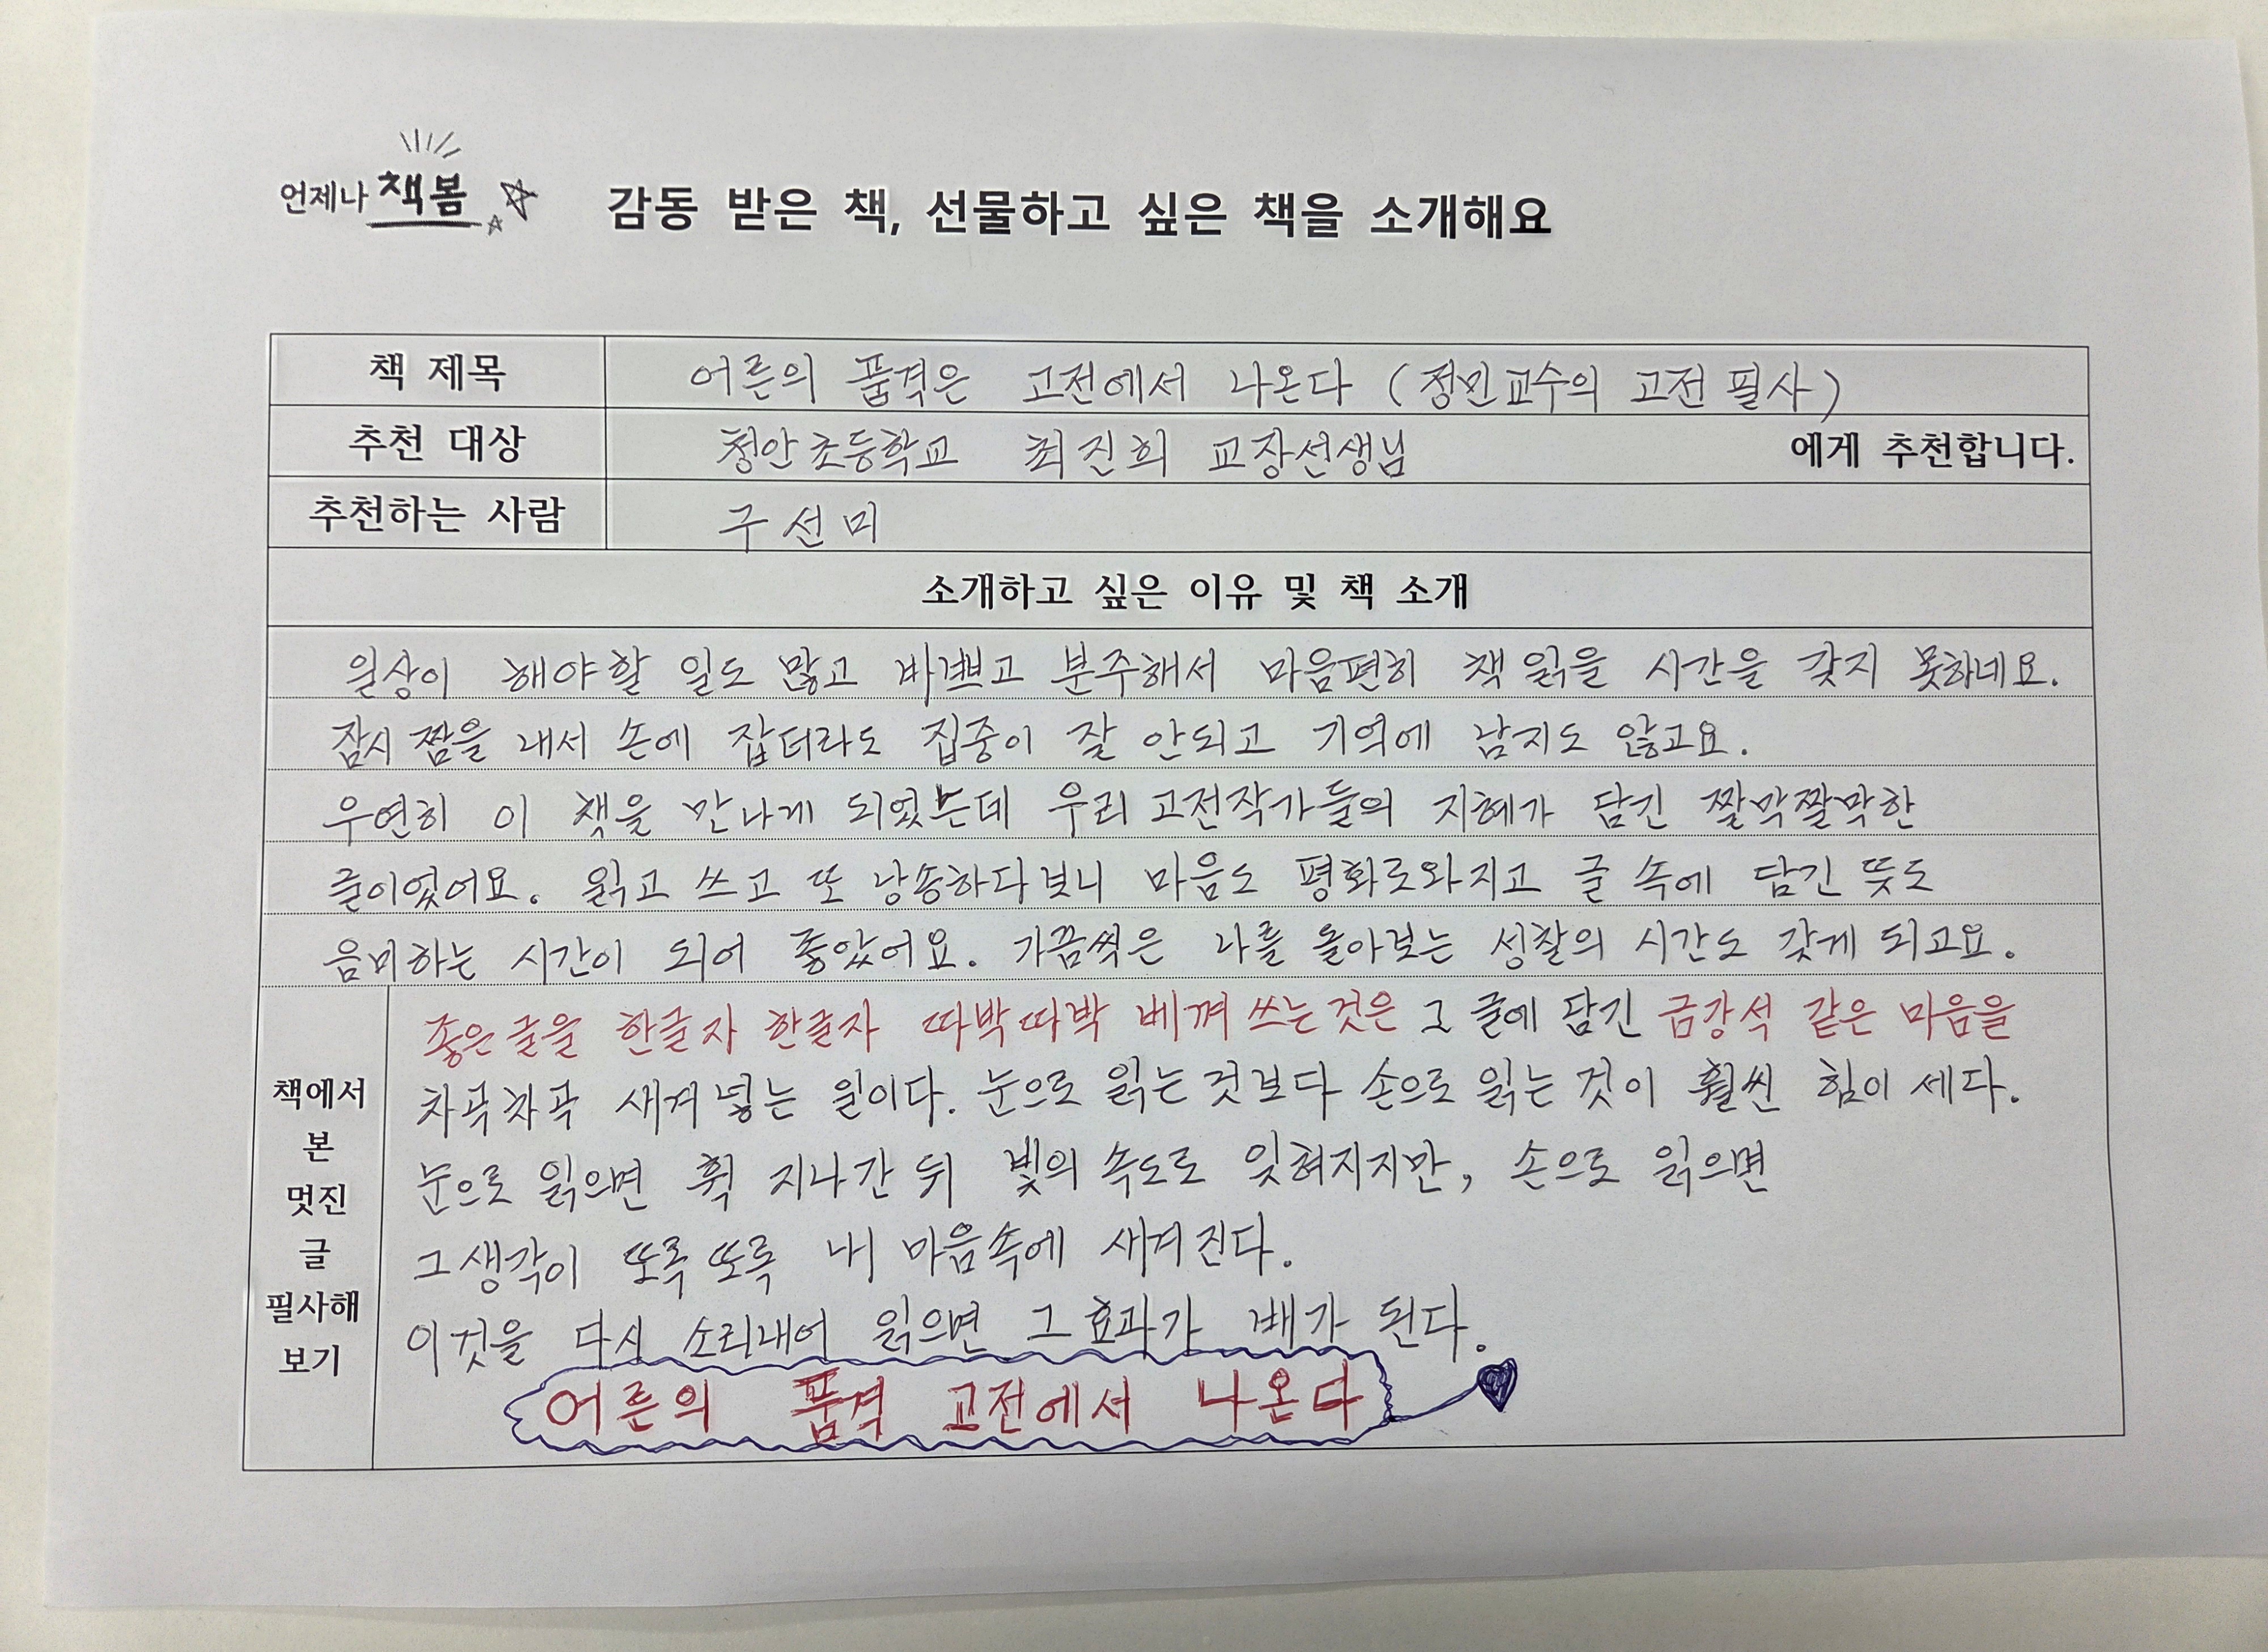 언제나 책봄
감동 받은 책, 선물하고 싶은 책을 소개해요
책 제목 어른의 품격은 고전에서 나온다 (정민교수의 고전 필사)
추천 대상 청안초등학교 최진희 교장선생님 에게 추천합니다.
추천하는 사람 구선미
소개하고 싶은 이유 및 책 소개
일상이 해야할 일도 많고 바쁘고 분주해서 마음편히 책 읽을 시간을 갖지 못하네요.
잠시 짬을 내서 손에 잡더라도 집중이 잘 안되고 기억에 남지도 않고요.
우연히 이 책을 만나게 되었는데 우리 고전작가들의 지혜가 담긴 짤막짤막한
글이었어요. 읽고 쓰고 또 낭송하다보니 마음도 평화로와지고 글 속에 담긴 뜻도
음미하는 시간이 되어 좋았어요. 가끔씩은 나를 돌아보는 성찰의 시간도 갖게 되고요.
책에서
본
멋진
글
필사해
보기
좋은글을 한글자 한글자 따박따박 베껴 쓰는것은 그 글에 담긴 금강석 같은 마음을
차곡차곡 새겨넣는 일이다. 눈으로 읽는 것보다 손으로 읽는 것이 훨씬 힘이 세다.
눈으로 읽으면 휙 지나간 뒤 빛의 속도로 잊혀지지만, 손으로 읽으면
그 생각이 또록또록 내 마음속에 새겨진다.
이것을 다시 소리내어 읽으면 그 효과가 배가 된다.
어른의 품격 고전에서 나온다